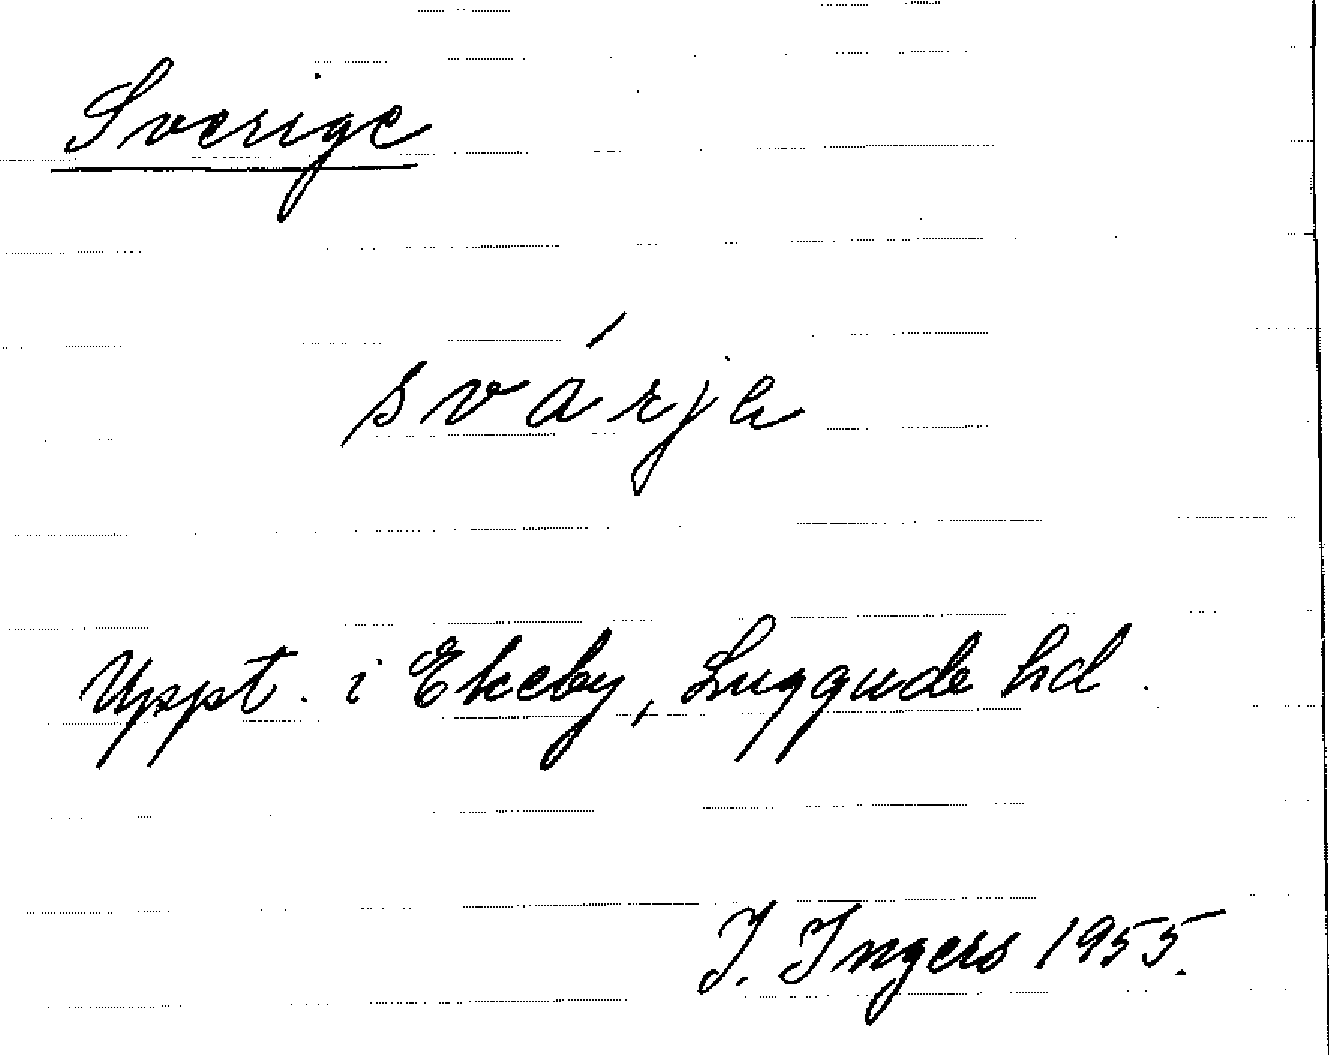 Sverige
svárja
Uppt. i Ekeby, Luggude hd.
I. Ingers 1955.